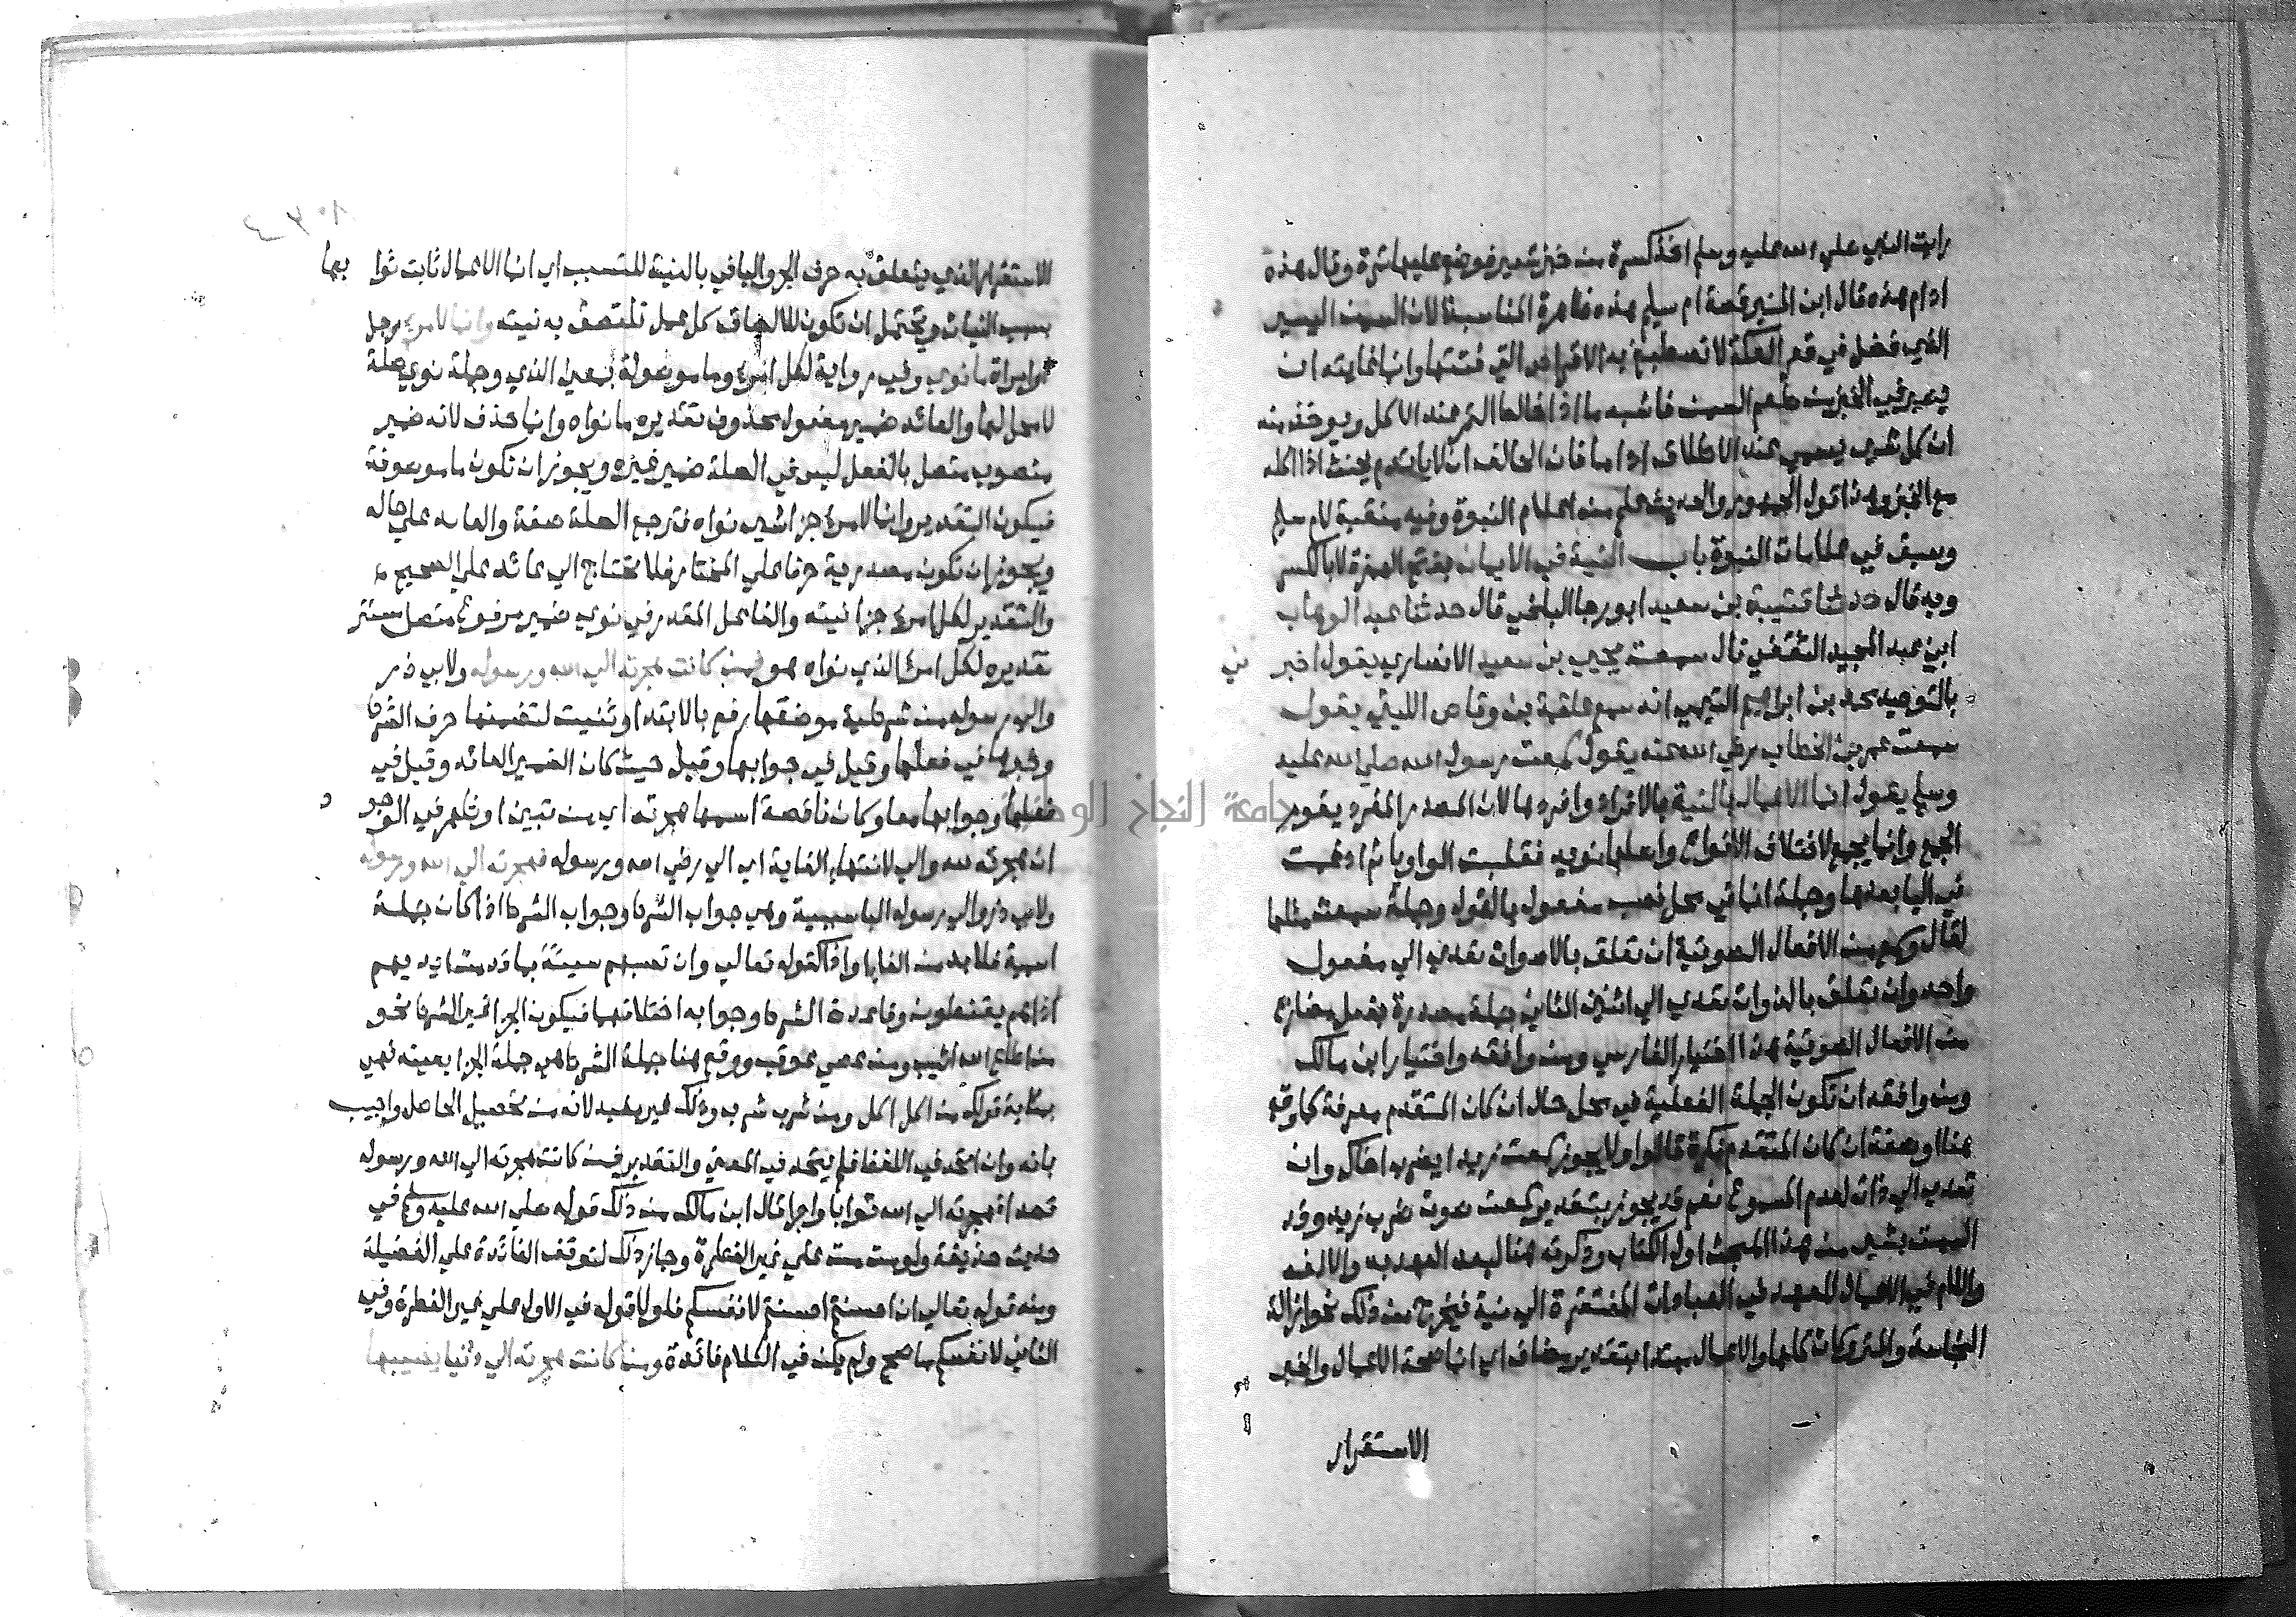 رايت النبي صلي الله عليه وسلم اخذ كسرة من خبز شعير فوضع عليها تمرة وقال هذه
ادام هذه قال ابن المنير قصة ام سليم هذه ظاهرة المناسبة لان السمن اليسير
الذي فضل في قعر العكة لا تصطبغ به الاقراص التي فتتها وانما غايته ان
يصير في الخبز من طعم السمن فاشبه ما اذا خالط التمر عند الاكل ويوخذ منه
ان كل شي يسمي عند الاطلاق اداما فان الحالف ان لا ياتدم يحنث اذا اكله
مع الخبز وهذا قول الجمهور والحديث علم من اعلام النبوة وفيه منقبة لام سليم
وسبق في علامات النبوة باب النية في الايمان بفتح الهمزة لا بالكسر
وبه قال حدثنا قتيبة بن سعيد ابو رجا البلخي قال حدثنا عبد الوهاب
ابن عبد المجيد الثقفي قال سمعت يحيي بن سعيد الانصاري يقول اخبر ني
بالتوحيد محمد بن ابراهيم التيمي انه سمع علقمة بن وقاص الليثي يقول
سمعت عمر بن الخطاب رضي الله عنه يقول سمعت رسول الله صلي الله عليه
وسلم يقول انما الاعمال بالنية بالافراد وافردها لان المصدر المفرد يقوم
الجمع وانما يجمع لاختلاف الانواع واصلها نويه فقلبت الواو يا ثم ادغمت
في اليا بعدها وجملة انما في محل نصب مفعول بالقول وجملة سمعت مثلها
لقال وسمع من الافعال الصوتية ان تعلق بالاصوات تعدي الي مفعول
واحد وان تعلق بالذوات تعدي الي اثنين الثاني جملة مصدرة بفعل مضارع
من الافعال الصوتية هذا اختيار الفارسي ومن وافقه واختيار ابن مالك
ومن وافقه ان تكون الجملة الفعلية في محل حال ان كان المتقدم معرفة كما وقع
هنا او صفة ان كان المتقدم نكرة قالوا ولا يجوز سمعت زيدا يضرب اخاك وان
تعدي الي ذات لعدم المسموع نعم قد يجوز بتقدير سمعت صوت ضرب زيد وقد
اتيت بشي من هذا المبحث اول الكتاب وذكرته هنا لبعد العهد به والالف
واللام في الاعمال للعهد في العبادات المفتقرة الي نية فيخرج من ذلك نحو ازالة
النجاسة والمتروكات كلها والاعمال مبتدا بتقدير مضاف اي انما صحة الاعمال والخبر
الاستقرار
الاستقرار الذي يتعلق به حرف الجر والبا في بالنية للتسبب اي انما الاعمال ثابت ثوا بها
بسبب النيات ويحتمل ان تكون للالصاق كل عمل تلتصق به نيته وانما لامرئ رجل
او امراة ما نوي وفي رواية لكل امرئ وما موصولة بمعني الذي وجملة نوي صلة
لا محل لها والعائد ضمير مفعول محذوف تقديره ما نواه وانما حذف لانه ضمير
منصوب متصل بالفعل ليس في الصلة ضمير غيره ويجوز ان تكون ما موصوفة
فيكون التقدير وانما لامرئ جزا شي نواه فترجع الصلة صفة والعائد علي حاله
ويجوز ان تكون مصدرية حرفا علي المختار فلا تحتاج الي عائد علي الصحيح
والتقدير لكل امرئ جزا نيته والفاعل المقدر في نوي ضمير مرفوع متصل مستتر
تقديره لكل امرئ الذي نواه هو فمن كانت هجرته الي الله ورسوله ولابي ذر
والي رسوله من شرطية موضعها رفع بالابتدا وبنيت لتضمنها حرف الشرط
وخبرها في فعلها وقيل في جوابها وقيل حيث كان الضمير العائد وقيل في
فعلها وجوابها معا وكان ناقصة اسمها هجرته اي من تبين او ظهر في الوجو د
ان هجرته لله والي لانتهاء الغاية اي الي رضي الله ورسوله فهجرته الي الله ورسوله
ولابي ذر والي رسوله الفا سببية وهي جواب الشرط وجواب الشرط اذا كان جملة
اسمية فلا بد من الفا او اذا كقوله تعالي وان تصبهم سيئة بما قدمت ايديهم
اذا هم يقنطون وقاعدة الشرط وجوابه اختلافهما فيكون الجزا غير الشرط نحو
من اطاع الله اثيب ومن عصي عوقب ووقع هنا جملة الشرط هي جملة الجزا بعينه فهي
بمثابة قولك من اكل اكل ومن شرب شرب وذلك غير مفيد لانه من تحصيل الحاصل واجيب
بانه وان اتحد في اللفظ فلم يتحد في المعني والتقدير فمن كانت هجرته الي الله ورسوله
قصدا فهجرته الي الله ثوابا واجرا قال ابن مالك من ذلك قوله صلي الله عليه وسلم في
حديث حذيفة ولو مت مت علي غير الفطرة وجاز ذلك لتوقف الفائدة علي الفضيلة
ومنه قوله تعالي ان احسنتم احسنتم لانفسكم فلولا قوله في الاول علي غير الفطرة وفي
الثاني لانفسكم ما صح ولم يكن في الكلام فائدة ومن كانت هجرته الي دنيا يصيبها
جامعة النجاح الوطنية